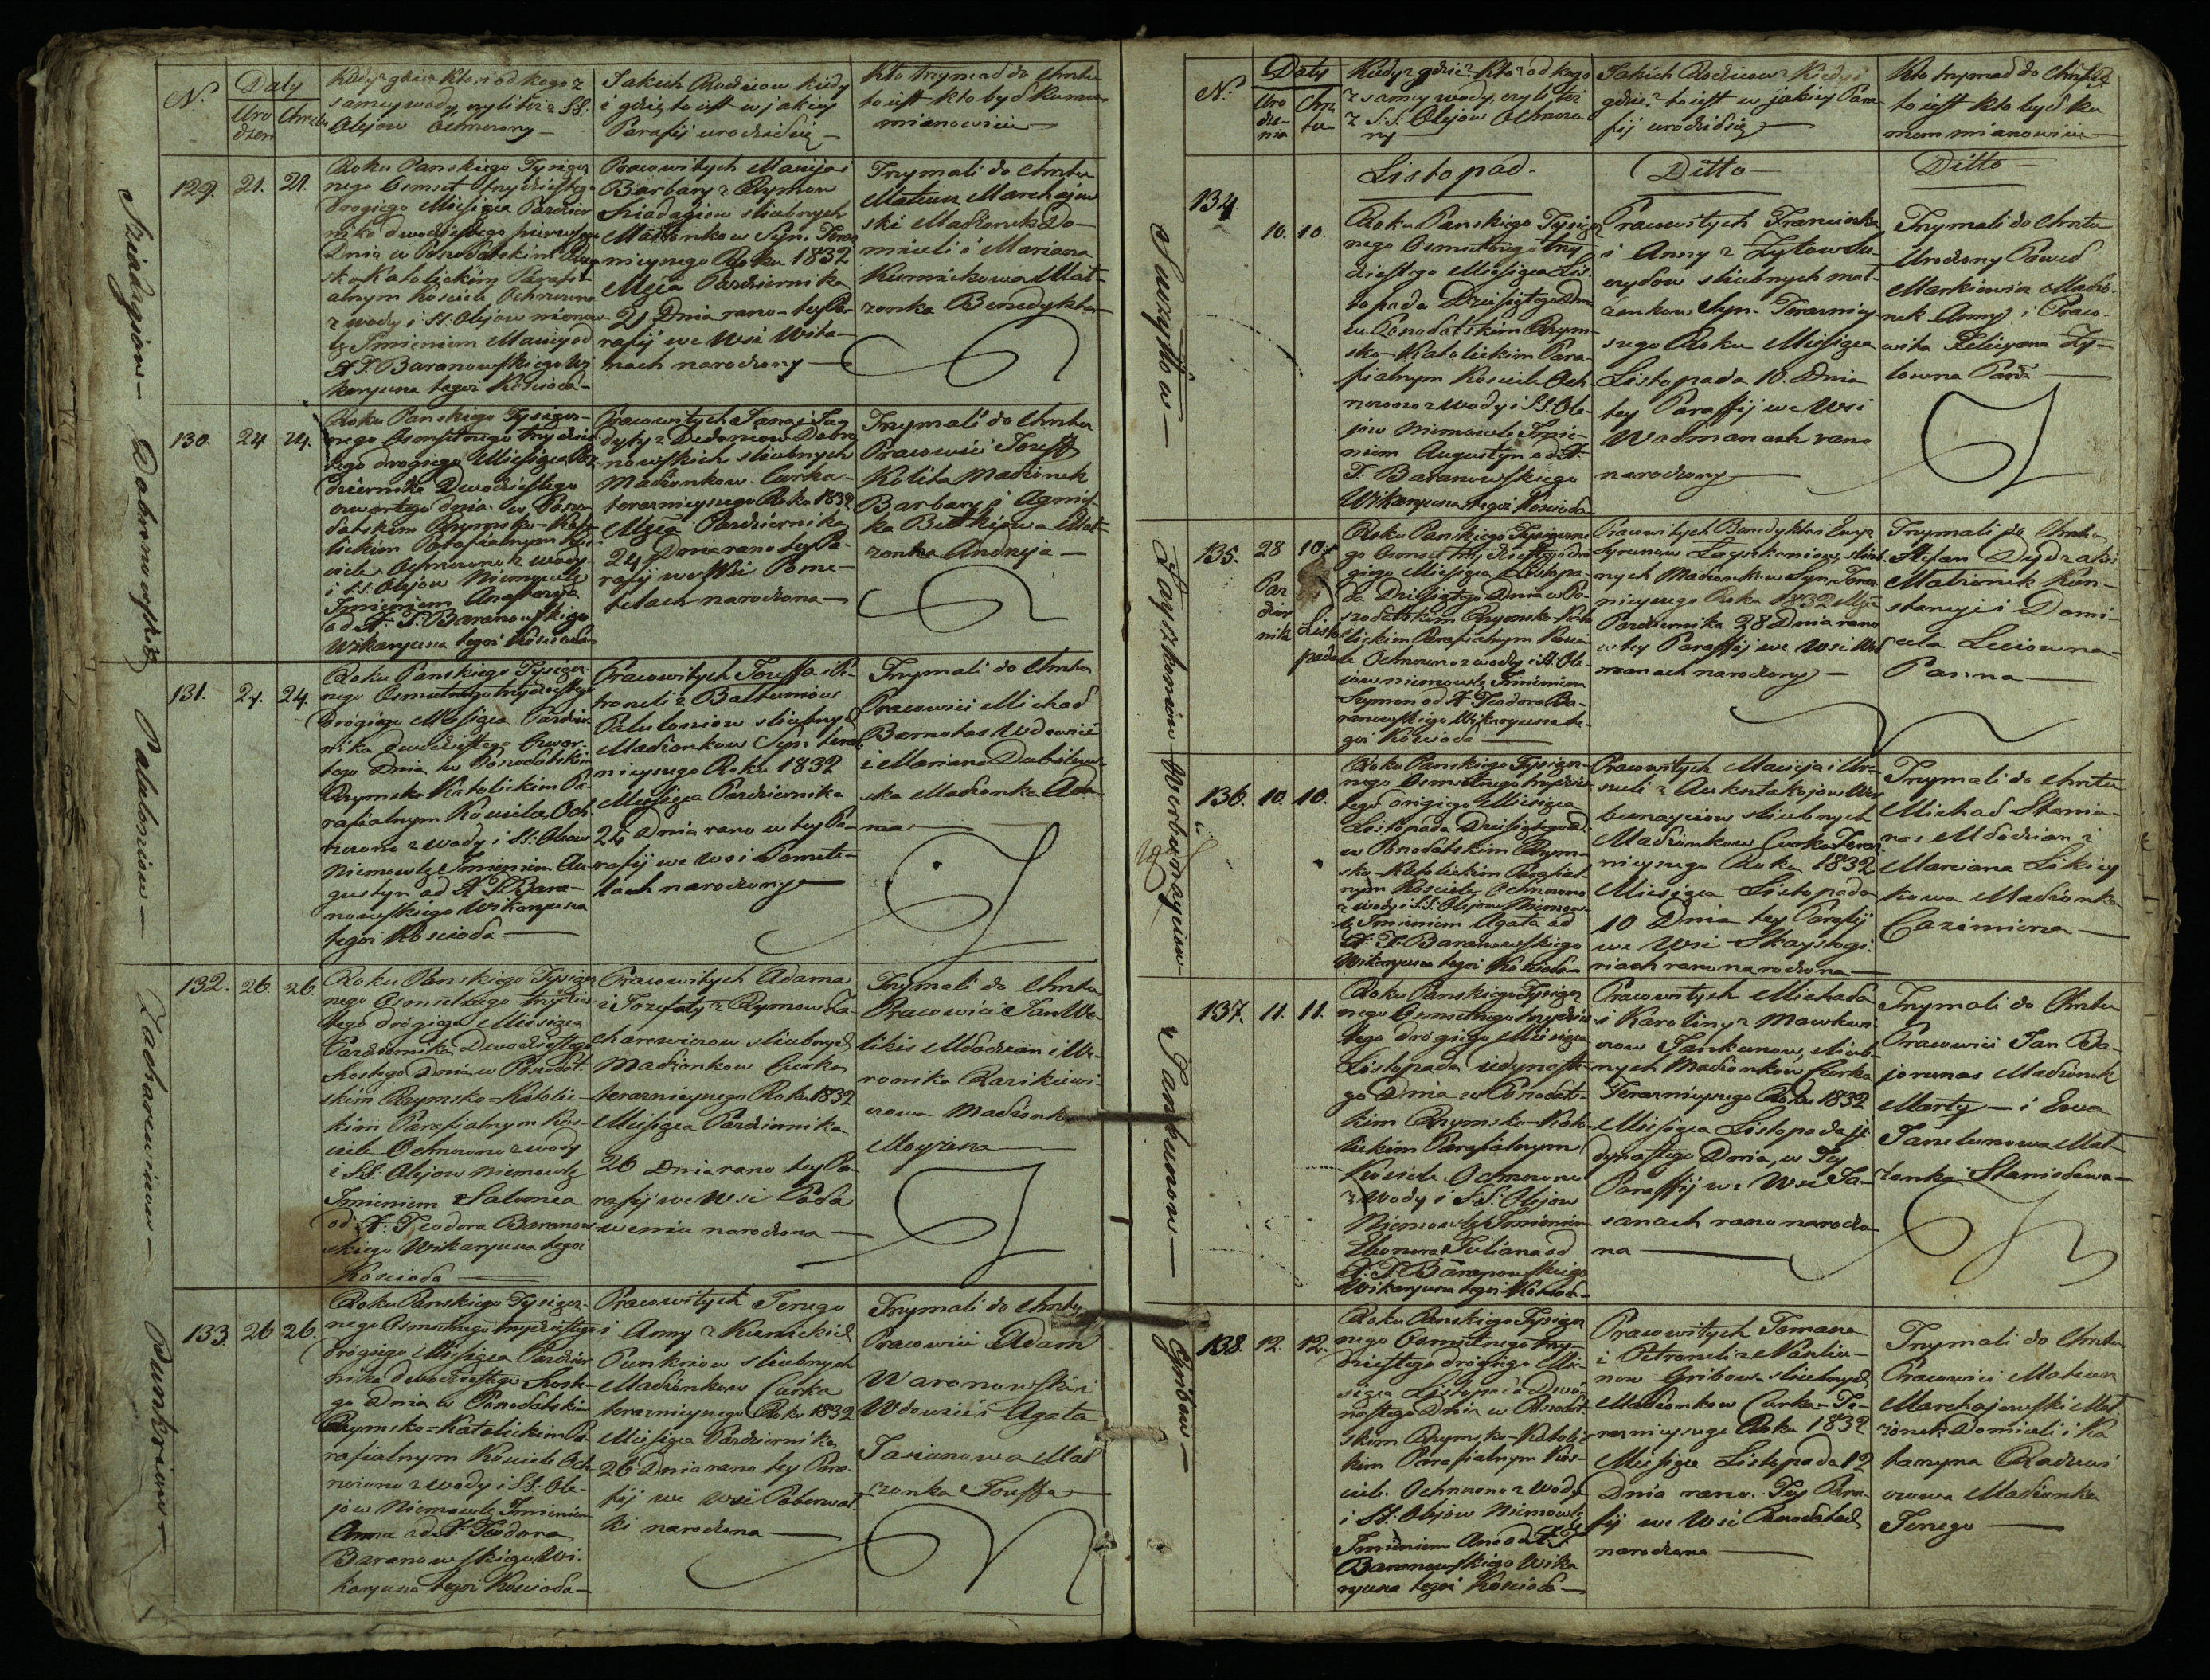 N.
Daty
Urodzen
Chrztu
Kiedy? gdzie? Kto? i od kogo z
samey wody, czyli też z SS.
Olejow Ochrzcony —
Jakich Rodzicow kiedy
i gdzie, to iest w jakiey
Parafij urodził się —
Kto trzymał do Chrztu
to iest kto był kumem
mianowicie —
129. 21. 21.
Roku Panskiego Tysiącz
nego Osmset trzydziestego
drogiego Miesiąca Pazdzier
nika dwudziestego pierwszego
Dnia w Poszołatskim Rzym
sko Katolickim Parafi-
alnym Kosciele Ochrzczono
z wody i SS. Olejow niemow-
lę Jmieniem Maciey od
X. T. Baranowskiego Wi
karyusza tegoż Kościoła —
Pracowitych Macieja i
Barbary z Rymow
Sziadagiow slubnych
Małżonkow Syn. Teraz
nieyszego Roku 1832
Msca Pazdziernika
21 Dnia rano tey Pa-
rafij we Wsi Wita-
nach narodzony —
Trzymali do Chrztu
Mateusz Marchajow
ski Małżonek Do-
miceli i Mariana
Kurnickowa Mał-
żonka Benedykta —
Sziadagiow —
130. 24. 24.
Roku Panskiego Tysiącz-
nego Osmsetnego trzydzies
tego drogiego Miesiąca Paz
dziernika Dwudziestego
czwartego dnia w Poszo
łatskim Rzymsko-Kato
lickim Parafialnym Koś-
ciele Ochrzczono z wody
i SS. Olejow Niemowlę
Jmieniem Anastazja
od X. T. Baranowskiego
Wikaryusza tegoż Kościoła
Pracowitych Jana i Ja
dyty z Dedoniow Dabro
nowskich slubnych
Małżonkow Curka-
teraznieyszego Roku 1832
Msca Pazdziernika
24 Dnia rano tey Pa-
rafij we Wsi Pome-
telach narodzona —
Trzymali do Chrztu
Pracowici Jozeff
Kolita Małżonek
Barbary i Agniesz-
ka Butkiowa Mał-
żonka Andrzeja —
Dabronowskich
131. 24. 24.
Roku Panskiego Tysiącz-
nego Osmsetnego trzydziestego
drogiego Miesiąca Pazdzier-
nika dwudziestego Czwar-
tego Dnia w Poszołatskim
Rzymsko Katolickim Pa-
rafialnym Kosciele Och-
rzczono z wody i SS. Olejow
Niemowlę Jmieniem Au-
gustyn od X. T. Bara-
nowskiego Wikaryusza
tegoż Kościoła —
Pracowitych Jozeffa i Pe-
troneli z Baltumow
Palulomiow slubnych
Małżonkow Syn teraz
nieyszego Roku 1832
Miesiąca Pazdziernika
24 Dnia rano w tey Pa-
rafij we Wsi Pomete-
lach narodzony —
Trzymali do Chrztu
Pracowici Michał
Bernotas Wdowiec
i Mariana Dubilews-
ska Małżonka Ada-
ma —
132. 26. 26.
Roku Panskiego Tysiącz
nego Osmsetnego trzydzies-
tego drógiego Miesiąca
Pazdziernika Dwudziestego
Szostego Dnia w Poszołat
skim Rzymsko-Katolic-
kim Parafialnym Koś-
ciele Ochrzczono z wody
i SS. Olejow Niemowlę
Jmieniem Salomea
od X. Teodora Baranow
skiego Wikaryusza tegoż
Kościoła —
Pracowitych Adama
i Jozefaty z Rymow Za-
charewiczow slubnych
Małżonkow Curka
teraznieyszego Roku 1832
Miesiąca Pazdziernika
26 Dnia rano tey Pa-
rafij we Wsi Poła
weniu narodzona —
Trzymali do Chrztu
Pracowici Jan Wa
likis Młodzian i We-
ronika Razikiewi-
czowa Małżonka
Moyżesza —
Zacharewiczow —
133. 26. 26.
Roku Panskiego Tysiącz-
nego Osmsetnego trzydziestego
drogiego Miesiąca Pazdzier
nika dwudziestego Szoste-
go Dnia w Poszołatskim
Rzymsko-Katolickim Pa
rafialnym Kosciele Och-
rzczono z wody i SS. Ole-
jow Niemowlę Jmieniem
Anna od X. Teodora
Baranowskiego Wi-
karyusza tegoż Kościoła —
Pracowitych Jerzego
i Anny z Kurnickich
Punkriow slubnych
Małżonkow Curka
terazniejszego Roku 1832
Miesiąca Pazdziernika
26 Dnia rano tey Para-
fij we Wsi Poberwal
ki narodzona —
Trzymali do Chrztu
Pracowici Adam
Waronowski
Wdowiec i Agata
Jasianowa Mał
żonka Jozeffa —
Punkriow —
N.
Daty
Urodzenia
Chrztu
Kiedy? gdzie? Kto? od kogo
z samey wody, czyli też
z SS. Olejow Ochrzczo-
ny —
Jakich Rodzicow? Kiedy i
gdzie? to iest w jakiey Para-
fij urodził się —
Kto trzymał do Chrztu
to iest kto był ku
mem mianowicie —
Listopad.
Ditto —
Ditto —
134.
10. 10.
Roku Panskiego Tysiącz
nego Osmsetnego trzy
dziestego Miesiąca Lis-
topada Dziesiątego Dnia
w Poszołatskim Rzym-
sko-Katolickim Para-
fialnym Kosciele Och-
rzczono z Wody i SS. Ole-
jow Niemowle Jmie-
niem Augustyn od X.
T. Baranowskiego
Wikaryusza tegoż Kościoła
Pracowitych Franciszka
i Anny z Zytow Su-
szydow slubnych mał-
żonkow Syn. Terazniey-
szego Roku Miesiąca
Listopada 10. Dnia
tey Paraffij we Wsi
Wadmanach rano
narodzony —
Trzymali do Chrztu
Urodzony Paweł
Markiewicz Małżo-
nek Anny i Praco-
wita Felicyana Zy-
towna Panna —
135. 28 Pazdziernika 10. Listopada
Roku Panskiego Tysiączne
go Osmset trzydziestego dro
giego Miesiąca Listopa-
da Dziesiątego Dnia w Po-
szołatskim Rzymsko-Kato
lickim Parafialnym Kosci-
le Ochrzczono z wody i SS. Ole-
jow niemowlę Jmieniem
Szymon od X. Teodora Ba-
ranowskiego Wikaryusza te-
goż Kościoła —
nych Małżonkow Syn. Teraz
nieyszego Roku 1832 Msca
Pazdziernika 28 Dnia rano
w tey Paraffij we Wsi Wad
manach narodzony —
Trzymali do Chrztu
Małżonek Kon-
stancyi i Domi-
cela Luciowna
Panna —
136. 10. 10.
Roku Panskiego Tysiącz-
nego Osmsetnego trzydzies
tego drógiego Miesiąca
Listopada Dziesiątego D.
w Poszołatskim Rzym-
sko-Katolickim Parafial
nym Kosciele Ochrzczono
z wody i SS. Olejow Niemow-
lę Jmieniem Agata od
X. T. Baranowskiego
Wikaryusza tegoż Kościoła —
Pracowitych Macieja i Ur-
szuli z Aukształajow Wer
bunayciow slubnych
Małżonkow Curka Teraz-
nieyszego Roku 1832
Miesiąca Listopada
10 Dnia tey Parafij
we Wsi Skaystogi-
riach rano narodzona —
Trzymali do Chrztu
Michał Stania-
nas Młodzian i
Marciana Likiey
kowa Małżonka
Cazimierza —
Werbunayciow —
137. 11. 11.
Roku Panskiego Tysiącz
nego Osmsetnego trzydzies
tego drógiego Miesiąca
Listopada iedynaste-
go Dnia w Poszołats-
kim Rzymsko-Kato-
lickim Parafialnym
Kościele Ochrzczono
z Wody i SS. Olejow
Niemowlę Jmieniem
Eleonora Juliana od
X. T. Baranowskiego
Wikaryusza tegoż Kościoła —
Pracowitych Michała
i Karoliny z Mawkwi
czow Jankunow, slub-
nych Małżonkow Curka
Teraznieyszego Roku 1832
Miesiąca Listopada je-
dynastego Dnia, w Tey
Paraffij we Wsi Ja-
sanach rano narodzo
na —
Trzymali do Chrztu
Pracowici Jan Ba-
jorunas Małżonek
Marty — i Ewa
Janelunowa Mał-
żonka Stanisława —
Jankunow —
138. 12. 12.
Roku Panskiego Tysiącz
nego Osmsetnego trzy-
dziestego drógiego Mie-
siąca Listopada Dwó-
nastego Dnia w Poszołat-
skim Rzymsko-Katolic
kim Parafialnym Koś-
ciele. Ochrzczono z Wody
i SS. Olejow Niemowlę
Jmieniem Ana od X. T.
Baranowskiego Wika
ryusza tegoż Kościoła —
Pracowitych Tomasza
i Petroneli z Narkie-
now Gribow slubnych
Małżonkow Curka-Te-
raznieyszego Roku 1832
Miesiąca Listopada 12
Dnia rano. Tey Para-
fij we Wsi Poszołatach
narodzona —
Trzymali do Chrztu
Pracowici Mateusz
Marchajowski Mał
żonek Domiceli i Ka
tarzyna Radzewi
czowa Małżonka
Jerzego —
Gribow —